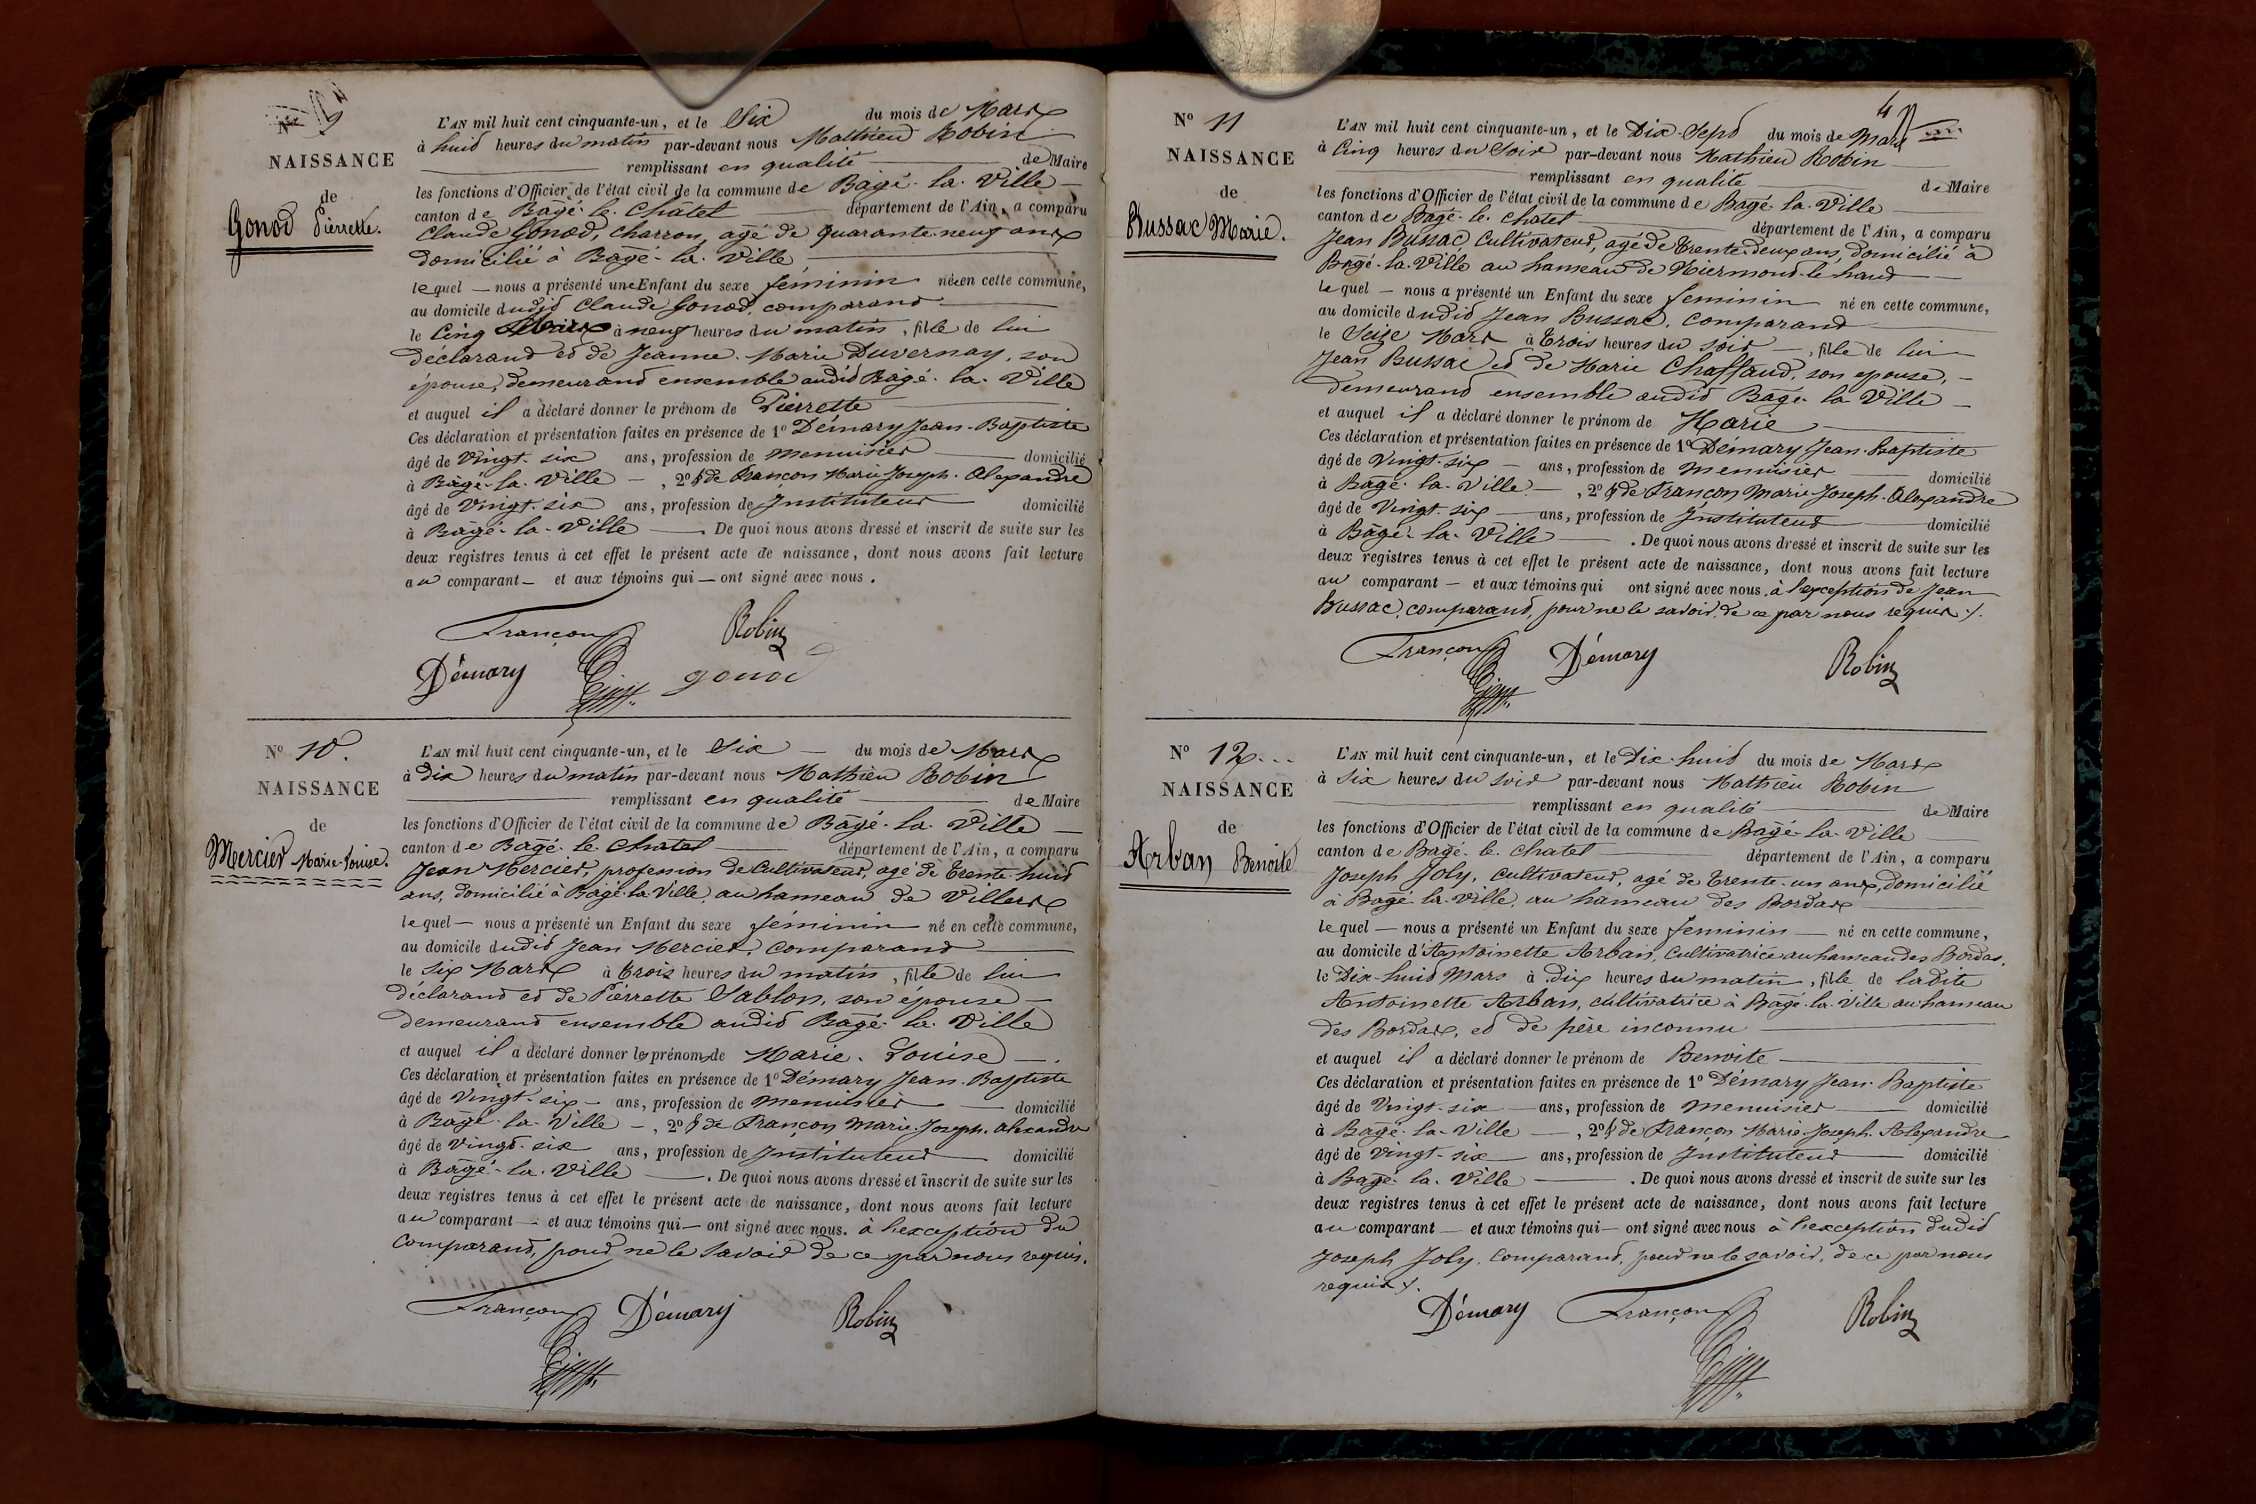 Nº 9
NAISSANCE
de
Gonod Pierrette.
L'AN mil huit cent cinquante-un, et le Six du mois de Mars
à huit heures du matin par-devant nous Mathieu Robin
remplissant en qualité de Maire
les fonctions d'Officier de l'état civil de la commune de Bagé-la-Ville
canton de Bagé-le-Châtel département de l'Ain, a comparu
Claude Gonod, charron, agé de quarante-neuf ans
domicilié à Bagé-la-Ville
lequel nous a présenté une Enfant du sexe féminin née en cette commune,
au domicile dudit Claude Gonod, comparant
le Cinq à neuf heures du matin, fille de lui
déclarant et de Jeanne-Marie Duvernay, son
épouse, demeurant ensemble audit Bagé-la-Ville
et auquel il a déclaré donner le prénom de Pierrette
Ces déclaration et présentation faites en présence de 1º Démary Jean-Baptiste
âgé de Vingt-six ans, profession de menuisier domicilié
à Bagé-la-Ville, 2º & de Françon Marie-Joseph-Alexandre
âgé de Vingt-six ans, profession de Instituteur domicilié
à Bagé-la-Ville. De quoi nous avons dressé et inscrit de suite sur les
deux registres tenus à cet effet le présent acte de naissance, dont nous avons fait lecture
au comparant et aux témoins qui ont signé avec nous.
Françon Robin
Démary gonod
Nº 10.
NAISSANCE
de
Mercier Marie-Louise.
L'AN mil huit cent cinquante-un, et le Six du mois de Mars
à Dix heures du matin par-devant nous Mathieu Robin
remplissant en qualité de Maire
les fonctions d'Officier de l'état civil de la commune de Bagé-la-Ville
canton de Bagé-le-Chatel département de l'Ain, a comparu
Jean Mercier, profession de Cultivateur, agé de Trente-huit
ans, domicilié à Bagé-la-Ville, au hameau de Villers
lequel nous a présenté un Enfant du sexe féminin né en cette commune,
au domicile dudit Jean Mercier, comparant
le six Mars à trois heures du matin, fille de lui
déclarant et de Pierrette Sablon, son épouse
demeurant ensemble audit Bagé-la-Ville
et auquel il a déclaré donner les prénoms de Marie-Louise.
Ces déclaration et présentation faites en présence de 1º Démary Jean-Baptiste
âgé de Vingt-six ans, profession de menuisier domicilié
à Bagé-la-Ville, 2º & de Françon Marie-Joseph-Alexandre
âgé de Vingt-six ans, profession de Instituteur domicilié
à Bagé-la-Ville. De quoi nous avons dressé et inscrit de suite sur les
deux registres tenus à cet effet le présent acte de naissance, dont nous avons fait lecture
au comparant et aux témoins qui ont signé avec nous. à l'exception du
comparant, pour ne le savoir de ce par nous requis.
Françon Démary Robin
4
Nº 11
NAISSANCE
de
Bussac Marie.
L'AN mil huit cent cinquante-un, et le Dix-Sept du mois de Mars
à Cinq heures du Soir par-devant nous Mathieu Robin
remplissant en qualité de Maire
les fonctions d'Officier de l'état civil de la commune de Bagé-la-Ville
canton de Bagé-le-Chatel département de l'Ain, a comparu
Jean Bussac, Cultivateur, agé de Trente-deux ans, domicilié à
Bagé-la-Ville au hameau de Niermont-le-haut
lequel nous a présenté un Enfant du sexe féminin né en cette commune,
au domicile dudit Jean Bussac, comparant
le Seize Mars à Trois heures du soir, fille de lui
Jean Bussac et de Marie Chaffaud, son epouse,
demeurant ensemble audit Bagé-la-Ville
et auquel il a déclaré donner le prénom de Marie
Ces déclaration et présentation faites en présence de 1º Démary Jean-Baptiste
âgé de Vingt-six ans, profession de menuisier domicilié
à Bagé-la-Ville, 2º & de Françon Marie-Joseph-Alexandre
âgé de Vingt-six ans, profession de Instituteur domicilié
à Bagé-la-Ville. De quoi nous avons dressé et inscrit de suite sur les
deux registres tenus à cet effet le présent acte de naissance, dont nous avons fait lecture
au comparant et aux témoins qui ont signé avec nous, à l'exception de Jean
Bussac, comparant, pour ne le savoir, de ce par nous requis.
Françon Démary Robin
Nº 12
NAISSANCE
de
Arban Benoite
L'AN mil huit cent cinquante-un, et le Dix-huit du mois de Mars
à Six heures du soir par-devant nous Mathieu Robin
remplissant en qualité de Maire
les fonctions d'Officier de l'état civil de la commune de Bagé-la-Ville
canton de Bagé-le-Chatel département de l'Ain, a comparu
Joseph Joly, cultivateur, agé de Trente-un ans, domicilié
à Bagé-la-Ville, au hameau des Bordas
lequel nous a présenté un Enfant du sexe féminin né en cette commune,
au domicile d'Antoinette Arban, Cultivatrice au hameau des Bordas,
le Dix-huit Mars à Dix heures du matin, fille de ladite
Antoinette Arban, cultivatrice à Bagé-la-Ville au hameau
des Bordas, et de père inconnu
et auquel il a déclaré donner le prénom de Benoite
Ces déclaration et présentation faites en présence de 1º Démary Jean-Baptiste
âgé de Vingt-six ans, profession de menuisier domicilié
à Bagé-la-Ville, 2º & de Françon Marie-Joseph-Alexandre
âgé de Vingt-six ans, profession de Instituteur domicilié
à Bagé-la-Ville. De quoi nous avons dressé et inscrit de suite sur les
deux registres tenus à cet effet le présent acte de naissance, dont nous avons fait lecture
au comparant et aux témoins qui ont signé avec nous à l'exception dudit
Joseph Joly, comparant, pour ne le savoir, de ce par nous
requis.
Démary Françon Robin